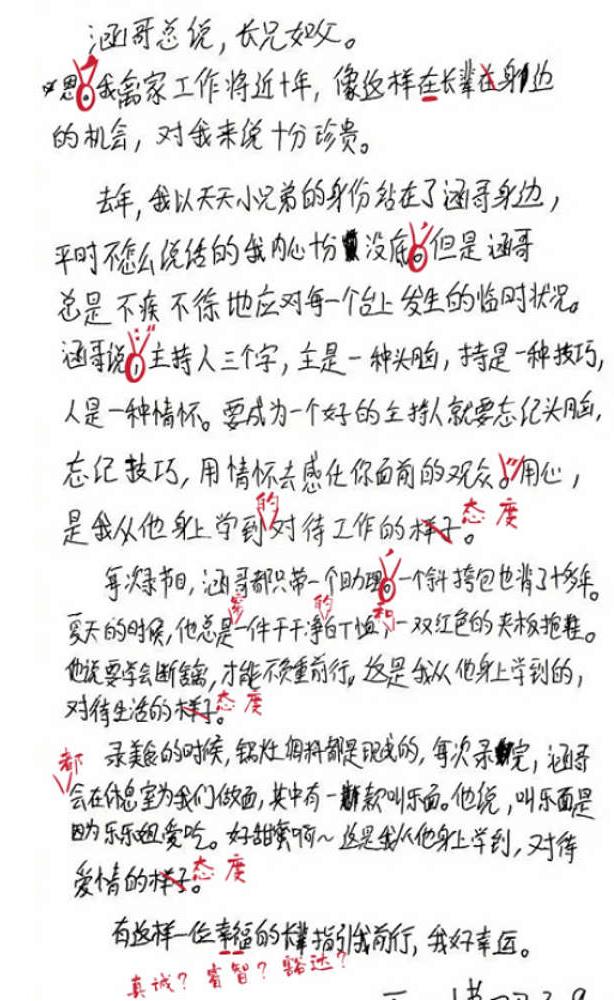 涵哥总说，长兄如父。
我离家工作将近十年，像这样在长辈在身边
的机会，对我来说十分珍贵。
去年，我以天天小兄弟的身份站在了涵哥身边，
平时不怎么说话的我内心十分没底。但是涵哥
总是不疾不徐地应对每一个台上发生的临时状况。
涵哥说，主持人三个字，主是一种头脑，持是一种技巧，
人是一种情怀。要成为一个好的主持人就要忘记头脑，
忘记技巧，用情怀去感任你面前的观众。用心，
的 态度
是我从他身上学到对待工作的样子。
每次录节目，涵哥都只带一个助理。一个斜挎包也背了十多年。
穿 的 和
夏天的时候，他总是一件干干净白T恤，一双红色的夹板拖鞋。
他说要学会断舍离，才能不负重前行。这是我从他身上学到的，
对待生活的样子。态度
录美食的时候，锅灶调料都是现成的，每次录完，涵哥
都
会在休息室为我们做面，其中有一款叫乐面。他说，叫乐面是
因为乐乐姐爱吃。好甜蜜啊～这是我从他身上学到，对待
爱情的样子。态度
有这样一位幸福的长辈指引我前行，我好幸运。
真诚？睿智？豁达？